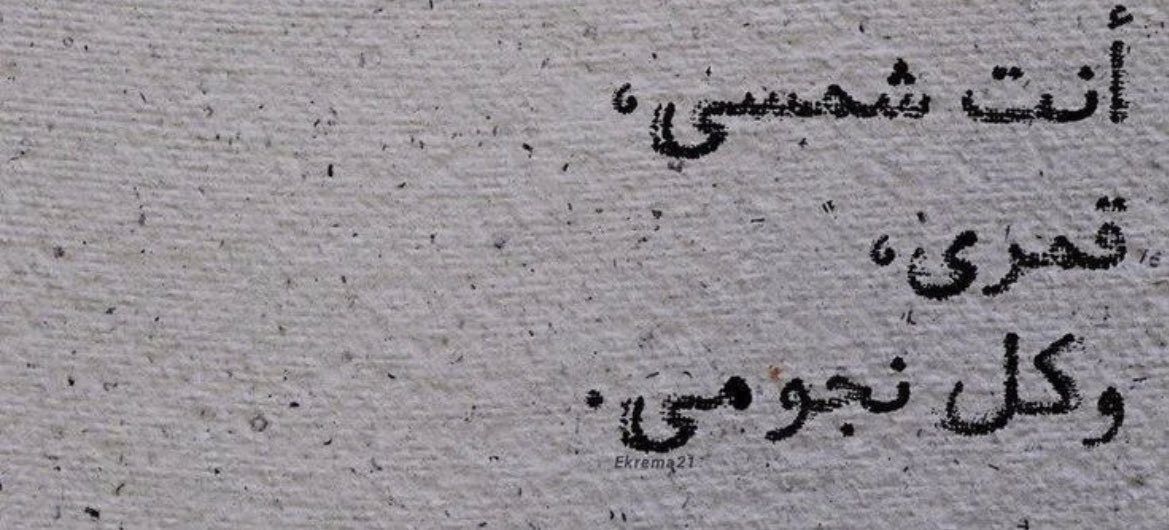 أنت شمسي،
قمري،
وكل نجومي.
Ekrema21